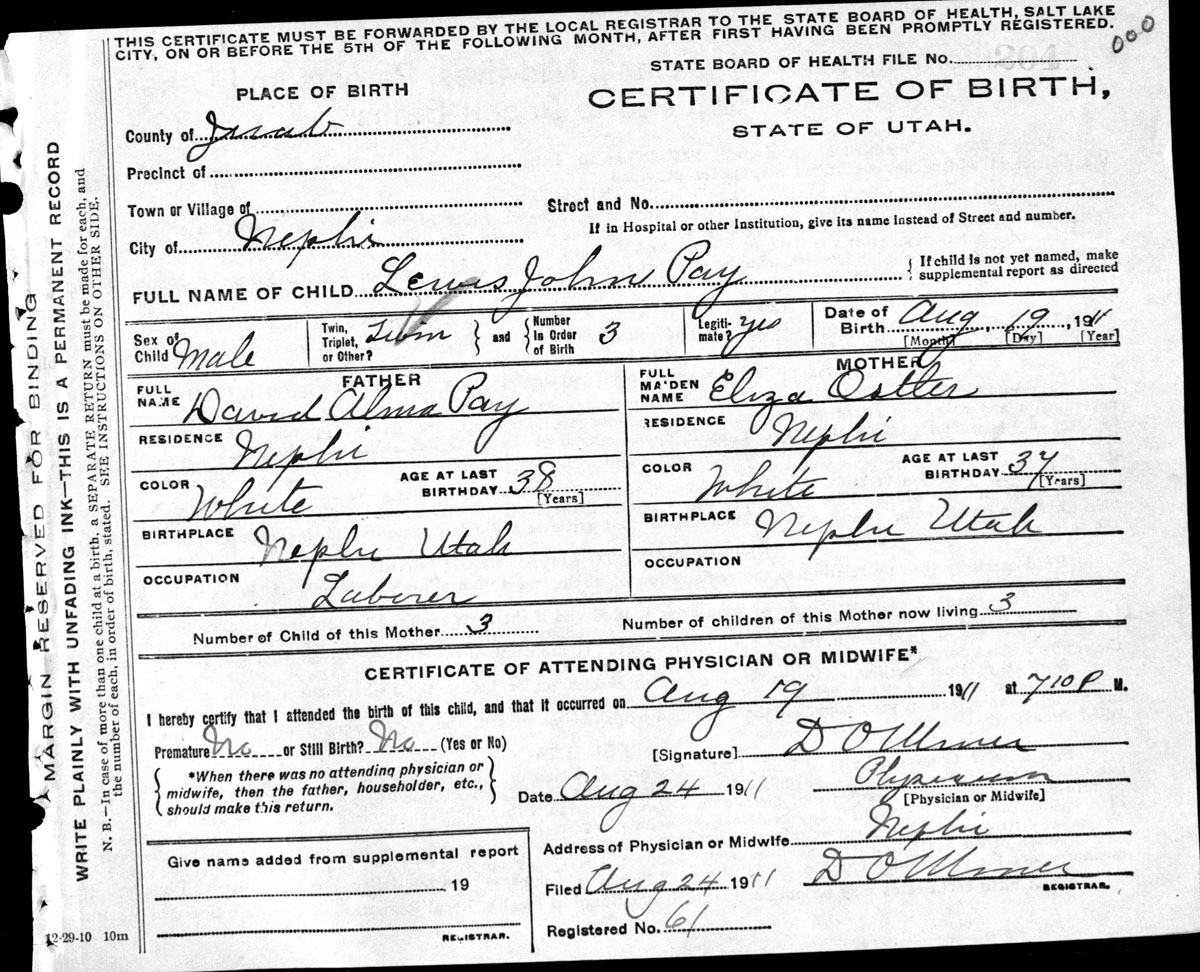 THIS CERTIFICATE MUST BE FORWARDED BY THE LOCAL REGISTRAR TO THE STATE BOARD OF HEALTH, SALT LAKE
CITY, ON OR BEFORE THE 5TH OF THE FOLLOWING MONTH, AFTER FIRST HAVING BEEN PROMPTLY REGISTERED.
000
STATE BOARD OF HEALTH FILE No.
304
PLACE OF BIRTH
CERTIFICATE OF BIRTH,
STATE OF UTAH.
County of Juab
Precinct of
Town or Village of
Street and No.
If in Hospital or other Institution, give its name instead of Street and number.
City of Nephi
FULL NAME OF CHILD Lewis John Pay
{ If child is not yet named, make
supplemental report as directed
Sex of Child Male
Twin, Triplet, or Other? Twin } and { Number in Order of Birth 3
Legiti- mate? yes
Date of Birth Aug, 19, 1911
[Month] [Day] [Year]
FATHER
MOTHER
FULL NAME David Alma Pay
FULL MAIDEN NAME Eliza Ostler
RESIDENCE Nephi
RESIDENCE Nephi
COLOR White
AGE AT LAST BIRTHDAY 38 [Years]
COLOR White
AGE AT LAST BIRTHDAY 37 [Years]
BIRTHPLACE Nephi Utah
BIRTHPLACE Nephi Utah
OCCUPATION Laborer
OCCUPATION
Number of Child of this Mother 3
Number of children of this Mother now living 3
CERTIFICATE OF ATTENDING PHYSICIAN OR MIDWIFE*
I hereby certify that I attended the birth of this child, and that it occurred on Aug 19 1911 at 710 P M.
Premature No or Still Birth? No (Yes or No)
[Signature] D O Miner
{ *When there was no attending physician or
midwife, then the father, householder, etc.,
should make this return. }
Date Aug 24 1911
Physician
[Physician or Midwife]
Address of Physician or Midwife Nephi
Filed Aug 24 1911 D O Miner
REGISTRAR.
Registered No. 61
Give name added from supplemental report
19
REGISTRAR.
12-29-10 10m
MARGIN RESERVED FOR BINDING
WRITE PLAINLY WITH UNFADING INK—THIS IS A PERMANENT RECORD
N. B.—In case of more than one child at a birth, a SEPARATE RETURN must be made for each, and
the number of each, in order of birth, stated. SEE INSTRUCTIONS ON OTHER SIDE.